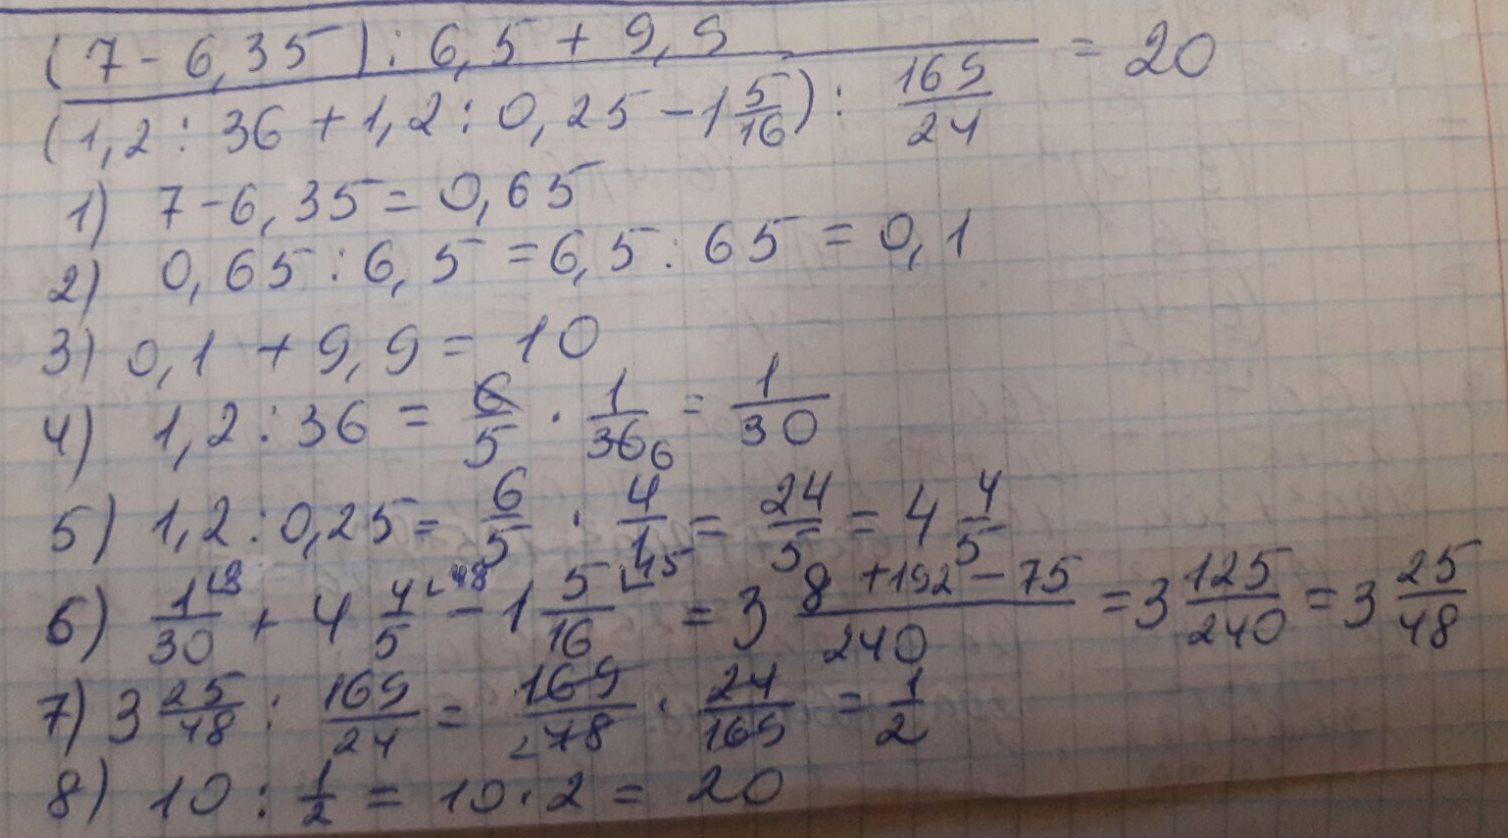 (7 - 6,35) : 6,5 + 9,9 = 20
(1,2 : 36 + 1,2 : 0,25 - 1 5/16) : 169/24
1) 7 - 6,35 = 0,65
2) 0,65 : 6,5 = 6,5 : 65 = 0,1
3) 0,1 + 9,9 = 10
4) 1,2 : 36 = 6/5 · 1/36 6 = 1/30
5) 1,2 : 0,25 = 6/5 · 4/1 = 24/5 = 4 4/5
6) 1/30 ⌊8 + 4 4/5 ⌊48 - 1 5/16 ⌊15 = 3 (8 + 192 - 75)/240 = 3 125/240 = 3 25/48
7) 3 25/48 : 169/24 = 169/2 78 · 24/169 = 1/2
8) 10 : 1/2 = 10 · 2 = 20